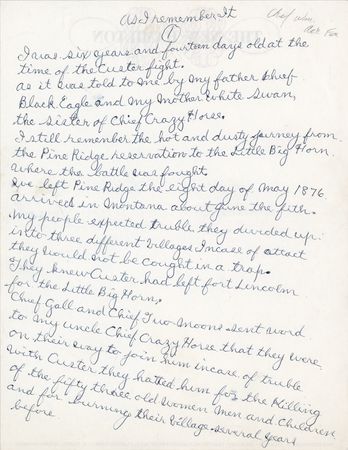 As I remember It
Chief Wm.
1
I was six years and fourteen days old at the
time of the Custer fight.
as it was told to me by my father Chief
Black Eagle and my Mother White Swan,
the Sister of Chief Crazy Horse.
I still remember the hot and dusty jurney from
the Pine Ridge reservation to the Little Big Horn.
Where the battle was fought.
We left Pine Ridge the eight day of May 1876
arrived in Montana about June the fith.
My people expected truble, they divided up
into three different Villages Incase of attact
they would not be cought in a trap.
They knew Custer had left fort Lincolm
for the Little Big Horn,
Chief Gall and Chief Two Moons sent word
to my uncle Chief Crazy Horse that they were
on their way to join him incase of truble
with Custer they hatted him for the Killing
of the fifty three old Women Men and Children
and for burning their Village several years
before